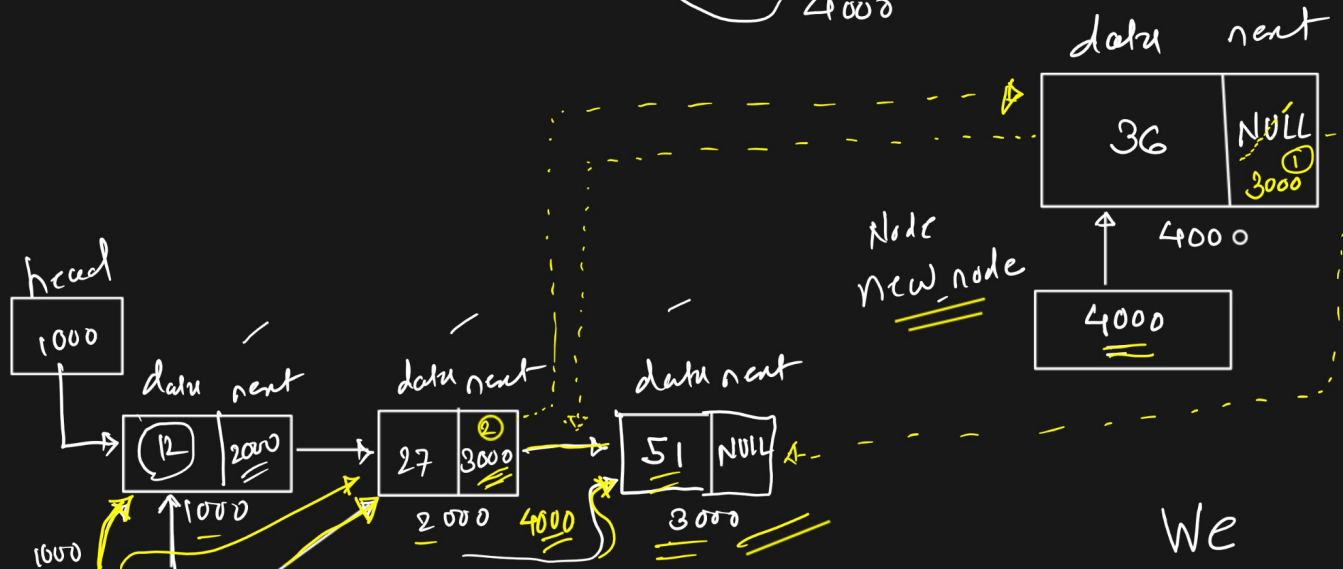 4000
data next
36 NULL
1
3000
4000
Node
new_node
4000
head
1000
data next
12 2000
1000
data next
27 3000
2
2000
4000
data next
51 NULL
3000
1000
We